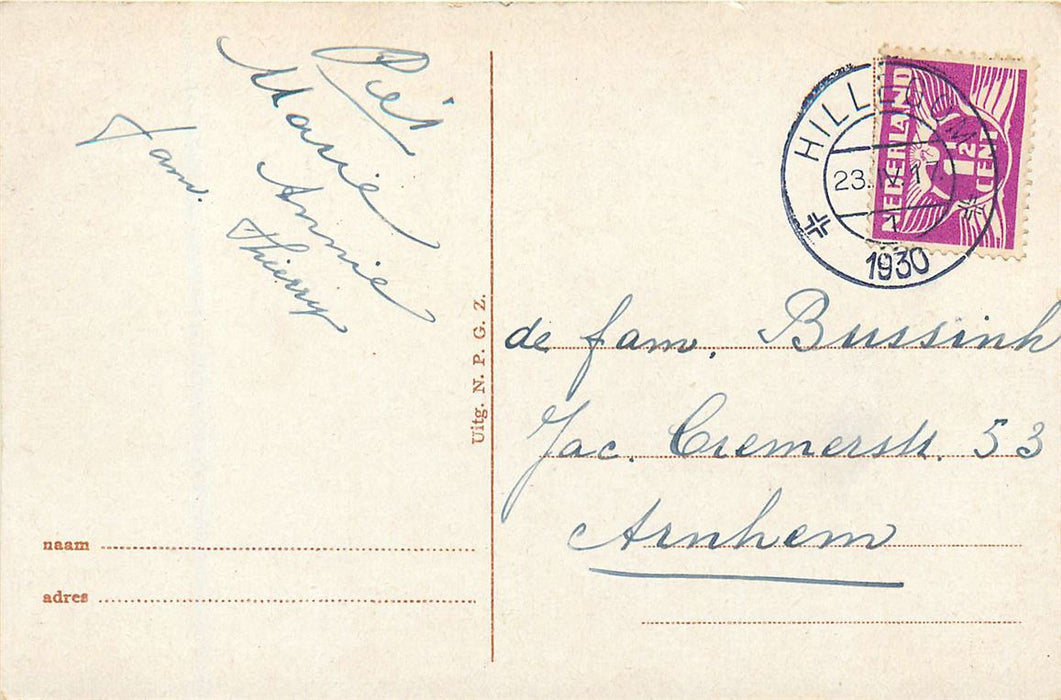 Piet
Marie
Annie
fam. Thierry
Uitg. N. P. G. Z.
naam
adres
HILLEGOM
23.IV.17.
1
1930
NEDERLAND
1½
CENT
de fam. Bussink
Jac. Cremerstr. 53
Arnhem